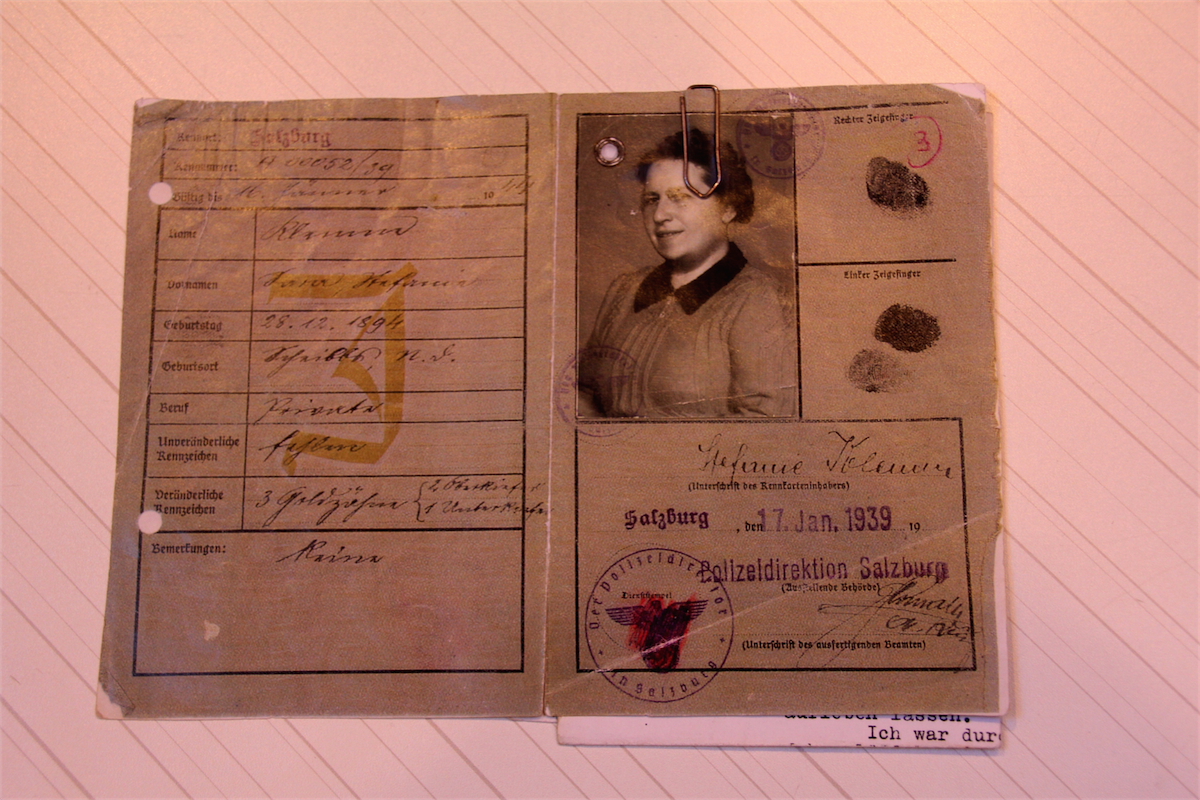 Kennort: Salzburg
Kennummer: A 00052/39
Gültig bis 16. Jänner 19 44
Name Klemm
Vornamen Sara Stefanie
Geburtstag 28.12.1894
Geburtsort Scheibbs, N.D.
Beruf Private
Unveränderliche Kennzeichen fehlen
Veränderliche Kennzeichen 3 Goldzähne { 2 Oberkiefer
1 Unterkiefer
Bemerkungen: Keine
J
Rechter Zeigefinger
3
Linker Zeigefinger
Stefanie
(Unterschrift des Kennkarteninhabers)
Salzburg, den 17. Jan. 1939 19
Polizeidirektion Salzburg
(Ausstellende Behörde)
Dienststempel
Der Polizeidirektor in Salzburg
(Unterschrift des ausfertigenden Beamten)
aufleben lassen.
Ich war dur